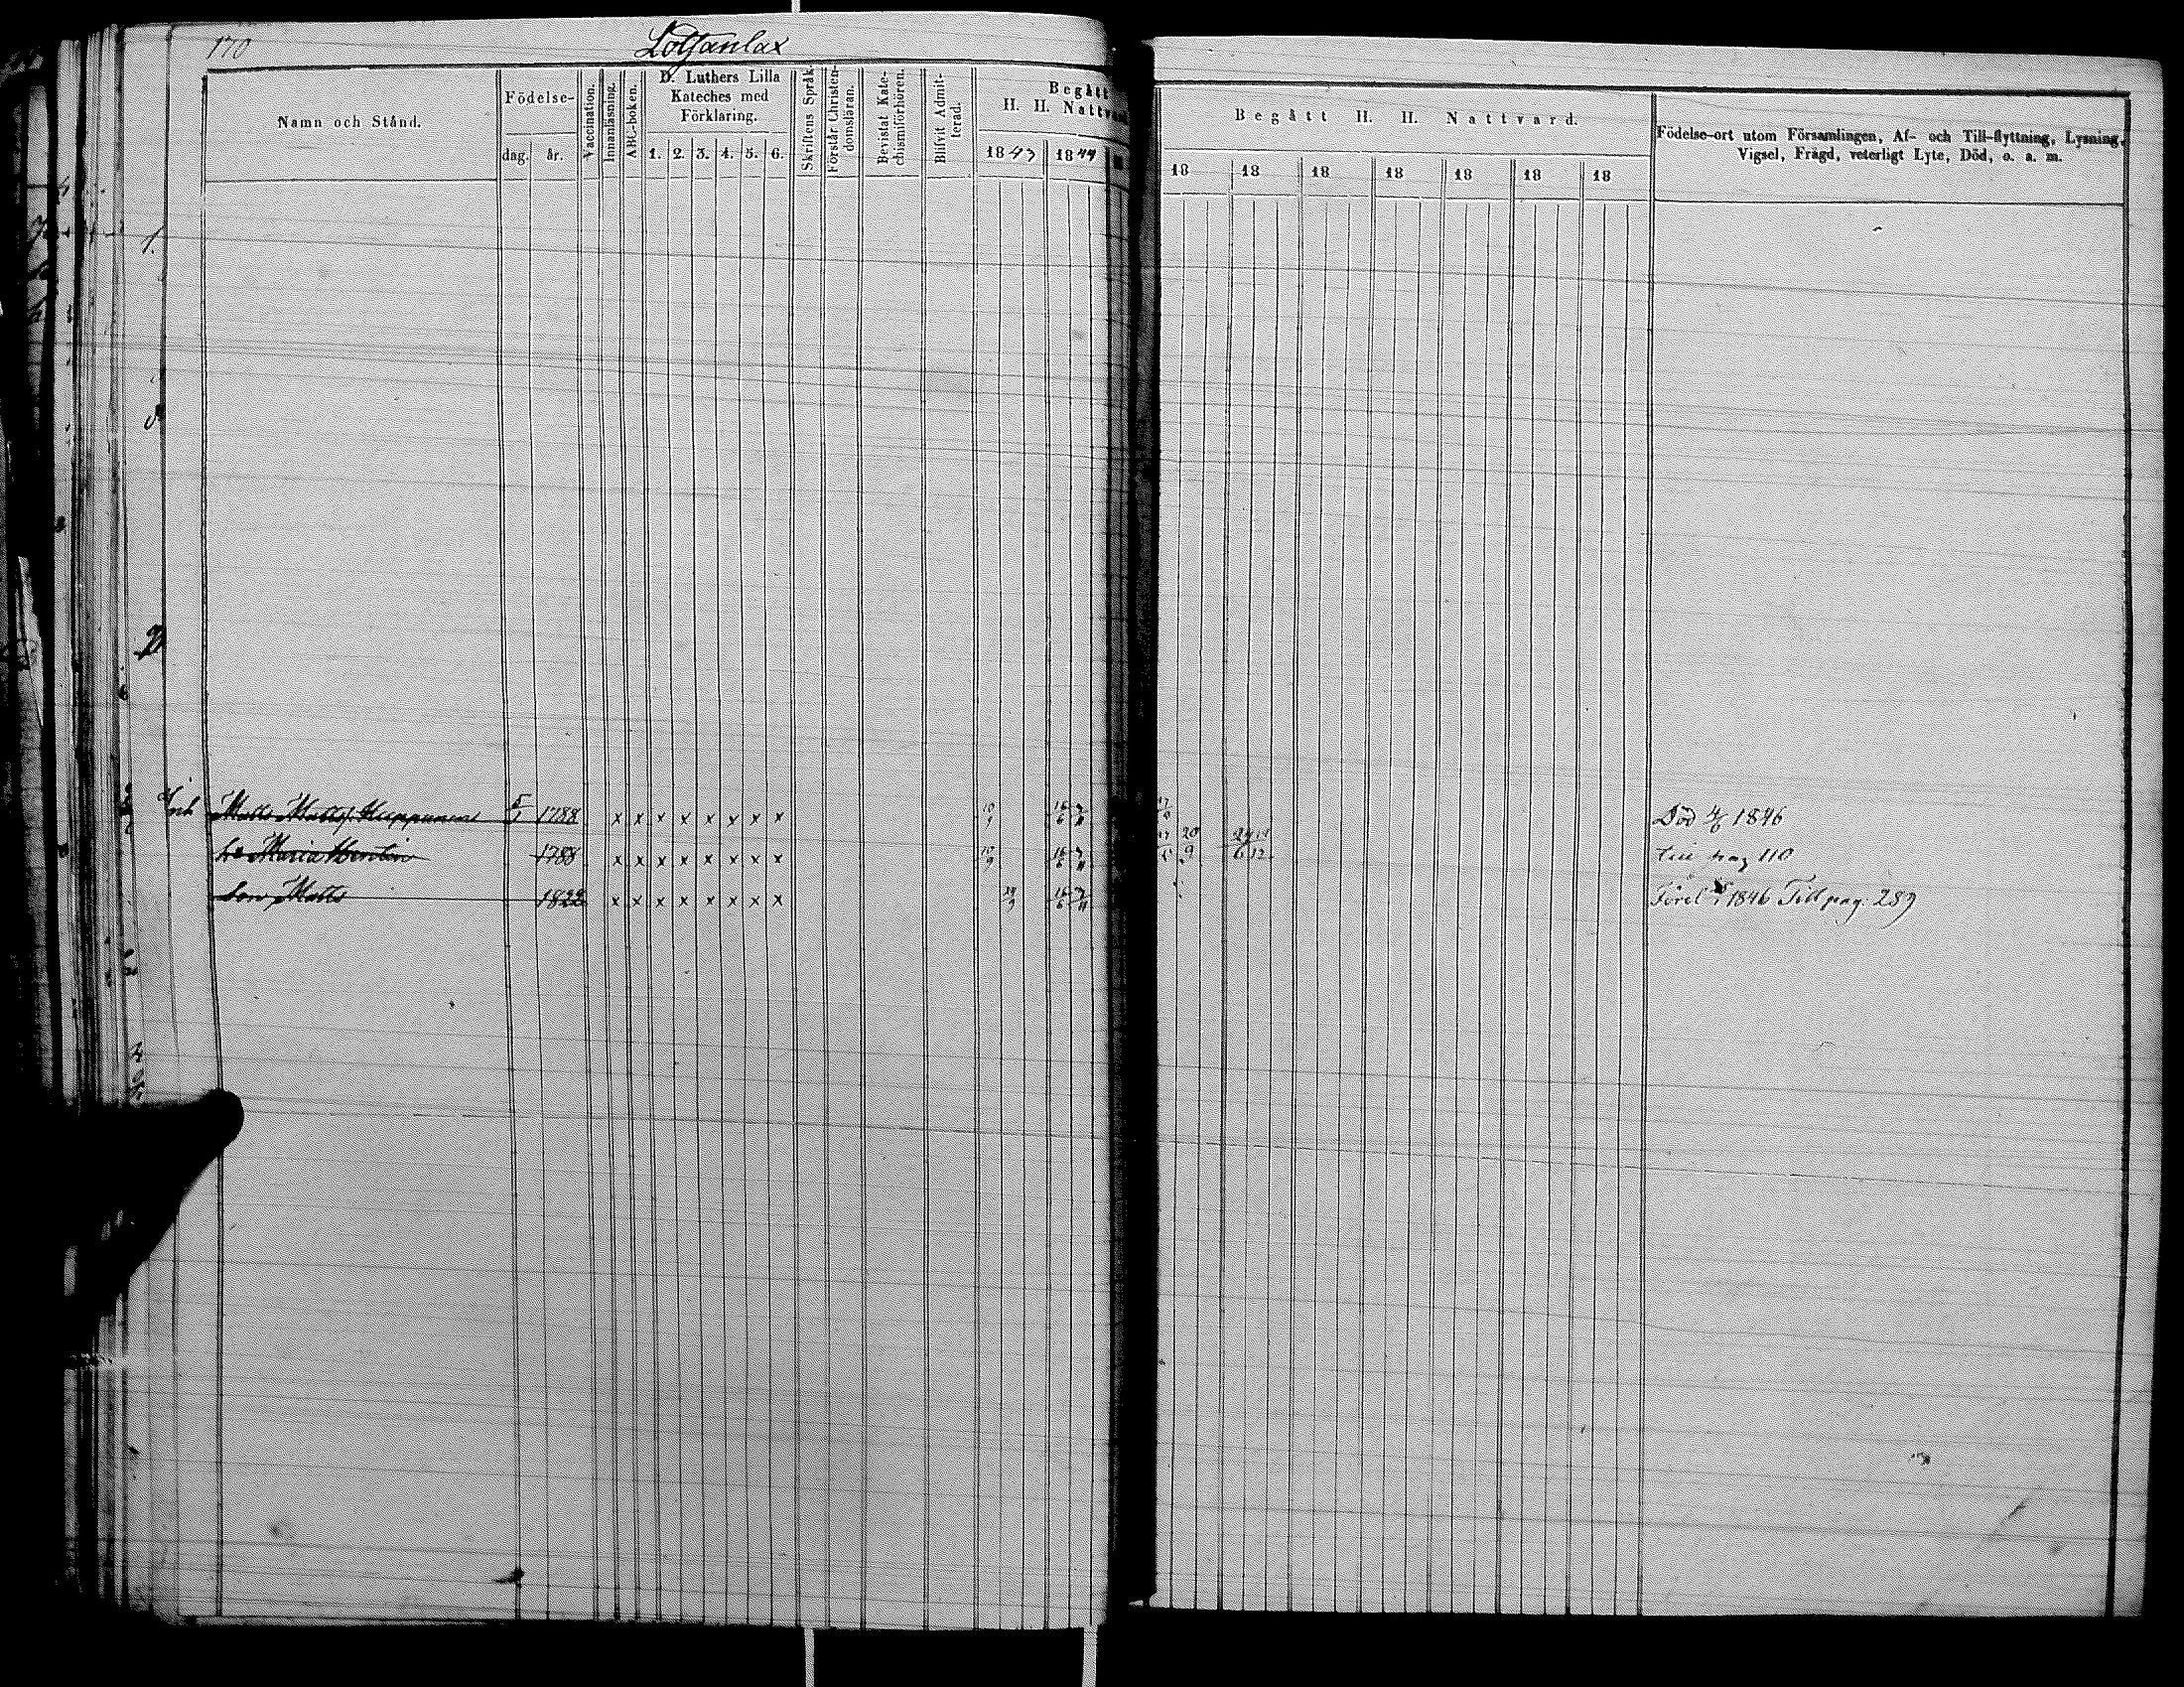 170
Namn och Stånd.
Födelse-
dag. år.
Vaccination.
Innanläsning.
ABC-boken.
D. Luthers Lilla
Kateches med
Förklaring.
1. 2. 3. 4. 5. 6.
Skriftens Språk.
Förstår Christen-
domsläran.
Bevistat Kate-
chismiförhören.
Blifvit Admit-
terad.
Begått
H. H. Nattvard
1843 1844
Begått H. H. Nattvard.
18 18 18 18 18 18 18
Födelse-ort utom Församlingen, Af- och Till-flyttning, Lysning,
Vigsel, Frägd, veterligt Lyte, Död, o. a. m.
1.
Inh Matts Mattss. 5/1 1788 x x x x x x x x 10/9 16/6 Död 4/6 1846
h:o Maria 1788 x x x x x x x x 10/9 16/6 20/9 24/6 Till pag 110
Son Matts 1822 x x x x x x x x 16/6 1846 Till pag: 289